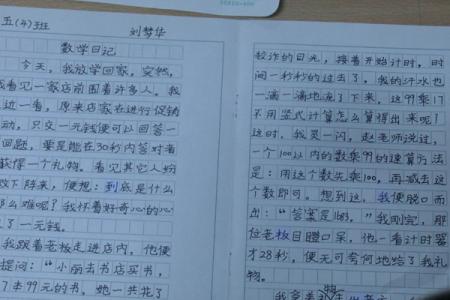 五(4)班 刘梦华
数学日记
今天，我放学回家，突然，
我看见一家店前围着许多人。我
走近一看，原来店家在进行促销
动，只交一元钱便可以回答一
回题，要是能在30秒内答对者
获得一个礼物。看见其它人纷
败下阵来，便想：到底是什么
么难呢？我怀着好奇心的心
了一元钱。
我跟着老板走进店内。他便
提问：“小丽去书店买书，
17本99元的书。她一共花了
较诈的目光，接着开始计时，时
间一秒秒的过去了，我的汗水也
一滴一滴地流了下来，这99乘17
不用竖式计算怎么算得出来呢？
这时，我灵一闪，赵老师说过，
一个100以内的数乘99的速算方法
是：用这个数先乘100，再减去这
个数即可。想到这，我便脱口而
出：“答案是1683。”我刚完，那
位老板目瞪口呆，他一看计时器
才28秒，便无可夸何地给了我礼
物。